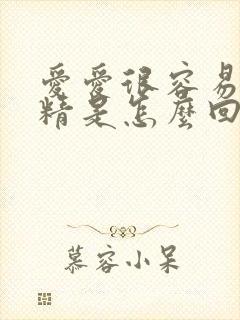 愛愛很容易
精是怎麼回
慕容小呆